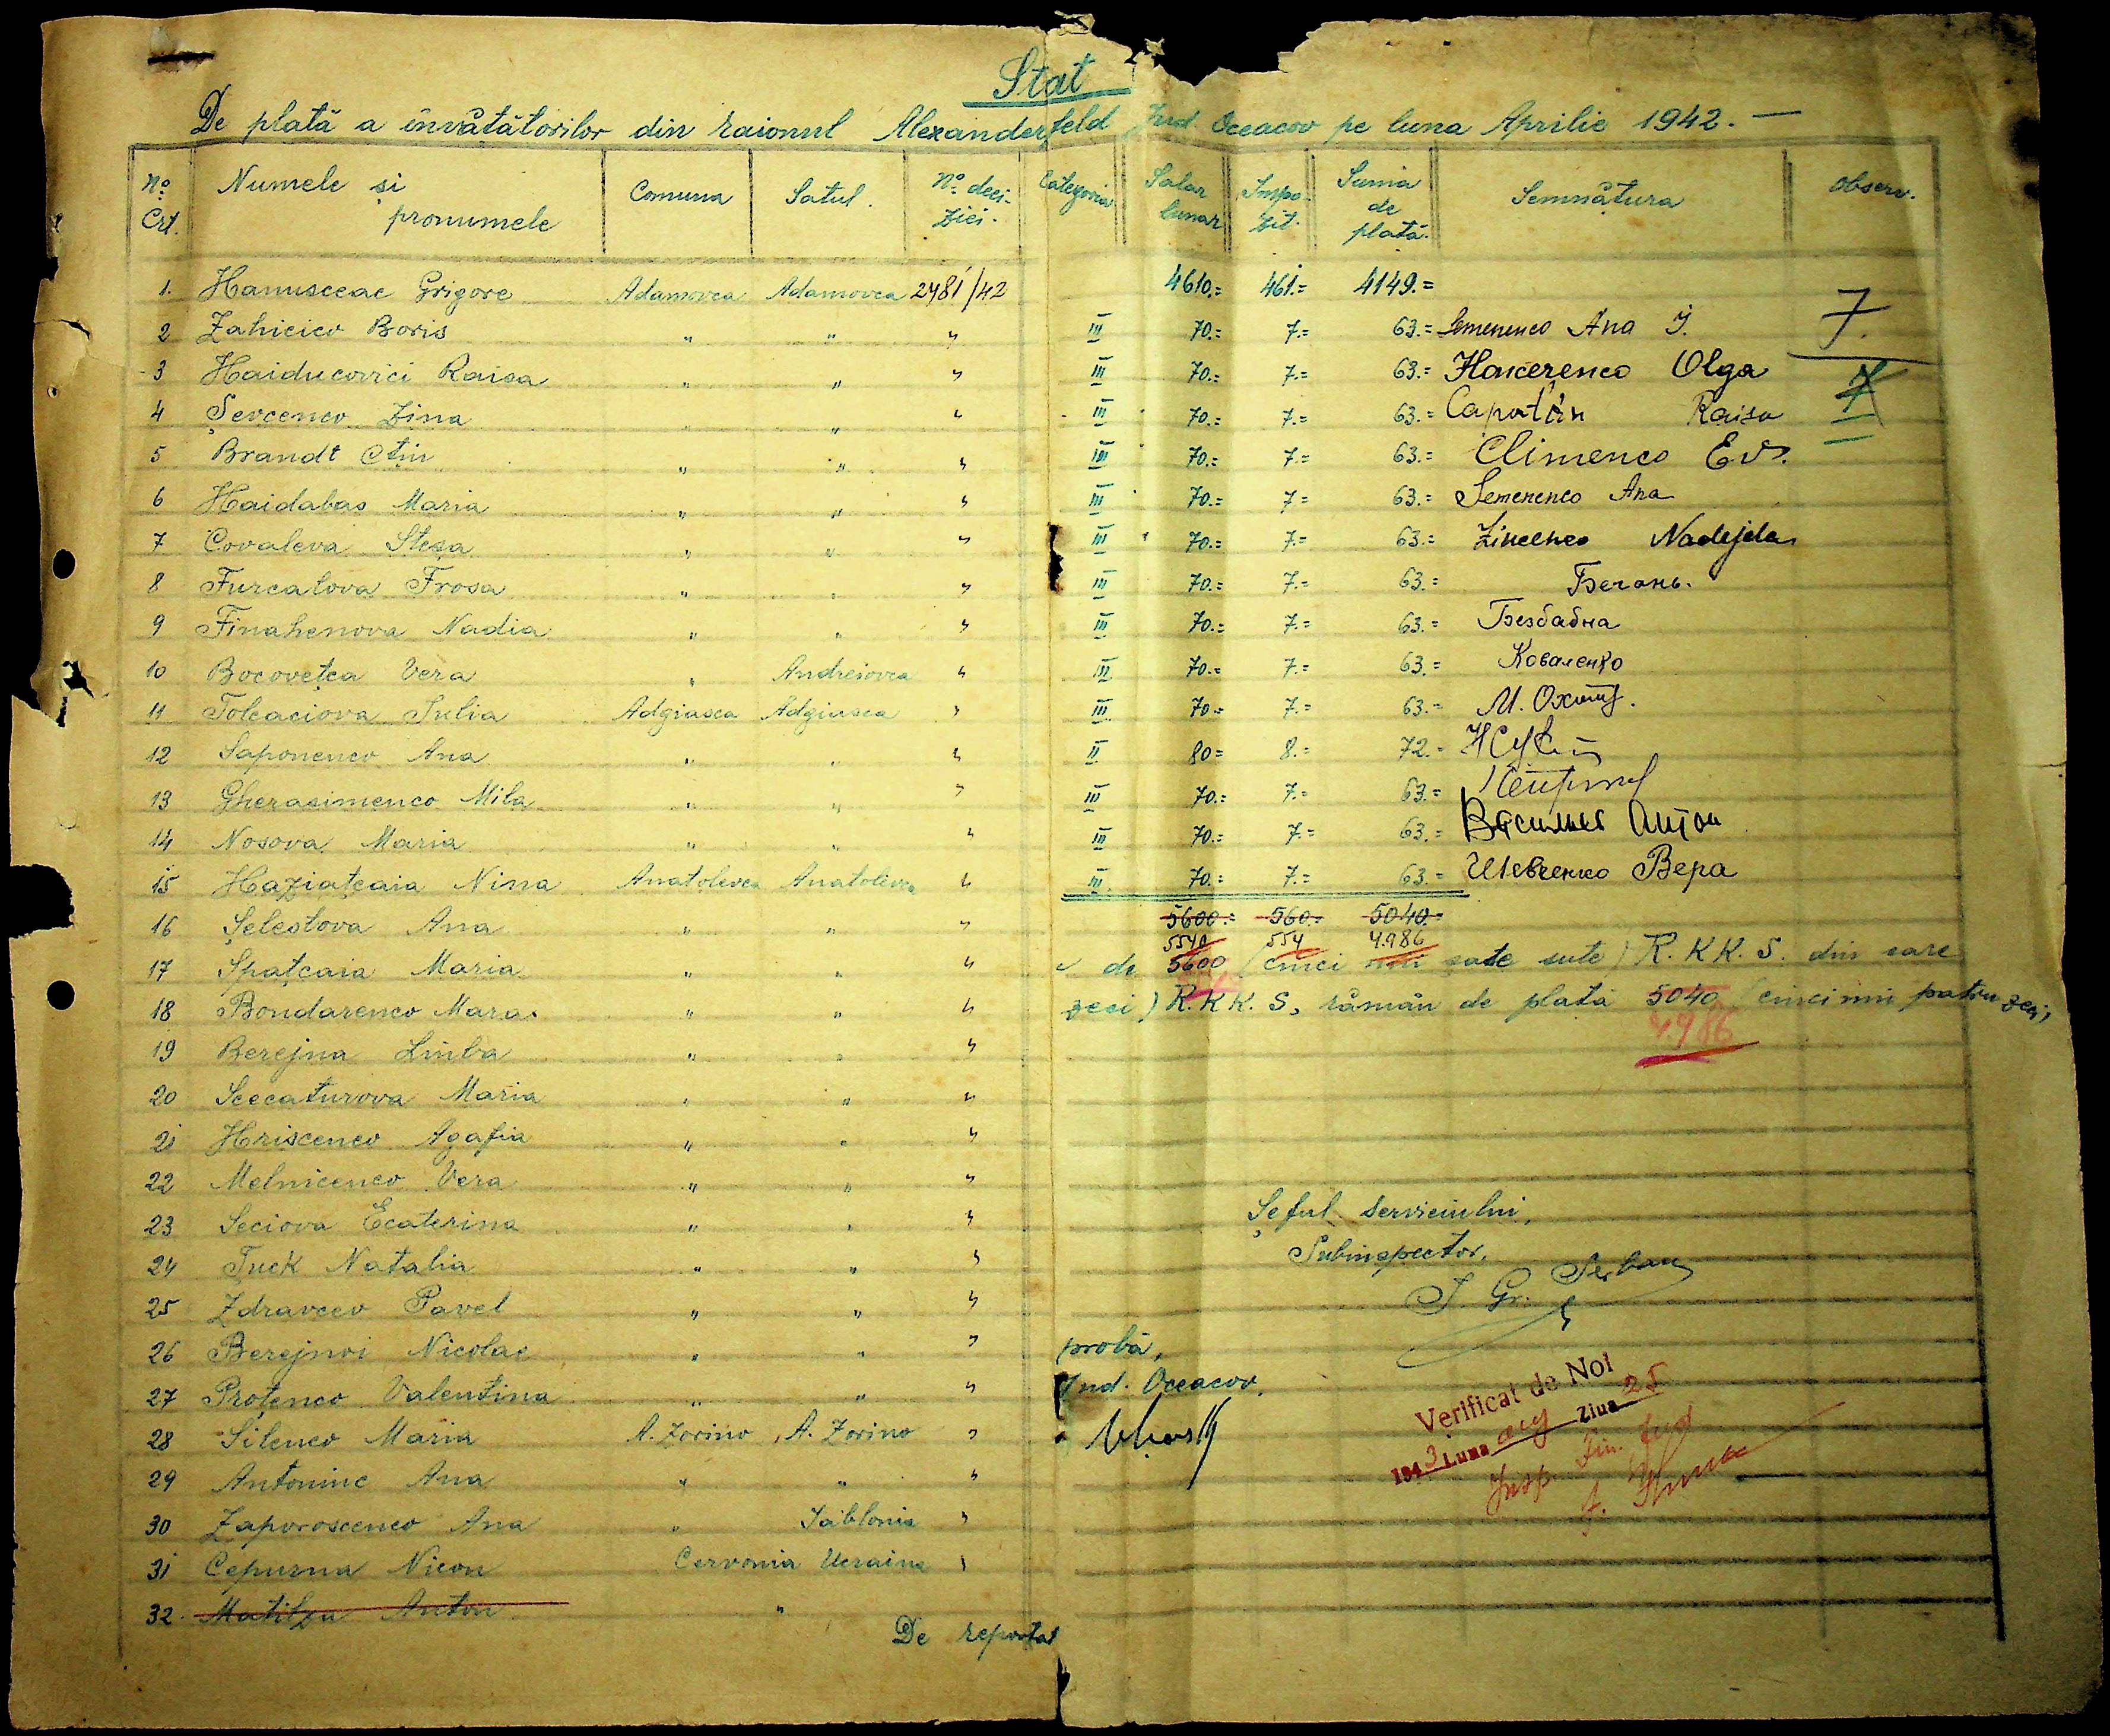 Stat
De plată a învătătorilor din raionul Alexanderfeld Jud. Oceacov pe luna Aprilie 1942. —
No. Crt. Numele și pronumele Comuna Satul. No. deciziei. Categoria Salar lunar Impozit. Suma de plată. Semnătura observ.
1. Hanusceac Grigore Adamovca Adamovca 2481/42 4610.= 461.= 4149.=
2 Zahicico Boris " " " III 70.= 7.= 63.= Semenenco Ana J. 7.
3 Haiducovici Raisa " " " III 70.= 7.= 63.= Honcerenco Olga 7
4 Șevcenco Zina " " " III 70.= 7.= 63.= Capatân Raisa
5 Brandt Ctin " " " III 70.= 7.= 63.= Climenco Ev.
6 Haidabas Maria " " " III 70.= 7= 63.= Semenenco Ana
7 Covaleva Steșa " " " III 70.= 7.= 63.= Zincenco Nadejda
8 Furcatova Frosa " " " III 70.= 7.= 63.= Бегань.
9 Finahenova Nadia " " " III 70.= 7.= 63.= Безбабна
10 Bocovețca Vera " Andreiovca " III 70.= 7.= 63.= Коваленко
11 Tolcaciova Iulia Adgiasca Adgiasca " III 70= 7.= 63.= М.
12 Saponenco Ana " " " II 80= 8.= 72.=
13 Gherasimenco Mila " " " III 70.= 7.= 63.=
14 Nosova Maria " " " III 70.= 7.= 63.= Василиев Антон
15 Haziațcaia Nina Anatolevca Anatolevca " III 70.= 7.= 63.= Шевченко Вера
16 Șelestova Ana " " " 5600.= 560.= 5040.=
5540 554 4.986
17 Spațcaia Maria " " " de 5600 (cinci mii șase sute) R.K.K.S. din care
18 Bondarenco Mara " " " zeci) R.K.K.S, rămân de plată 5040 (cinci mii patru zeci)
4.986
19 Berejna Liuba " " "
20 Scecaturova Maria " " "
21 Hriscenco Agafia " " "
22 Melnicenco Vera " " "
23 Seciova Ecaterina " " "
24 Tuck Natalia " " "
25 Zdravcev Pavel " " "
26 Berejnoi Nicolae " " "
27 Proțenco Valentina " " "
28 Silenco Maria A. Zorino A. Zorino "
29 Antoninc Ana " " "
30 Zaporoscenco Ana " Iablonia "
31 Cepurna Nicon Cervonia Ucraina "
32. Matilza Anton "
De reportat
Șeful serviciului,
Subinspector,
I. Gr. Șerban
probă,
Jud. Oceacov,
Verificat de Noi
1943 Luna aug Ziua 25
Insp. Fin. Jud